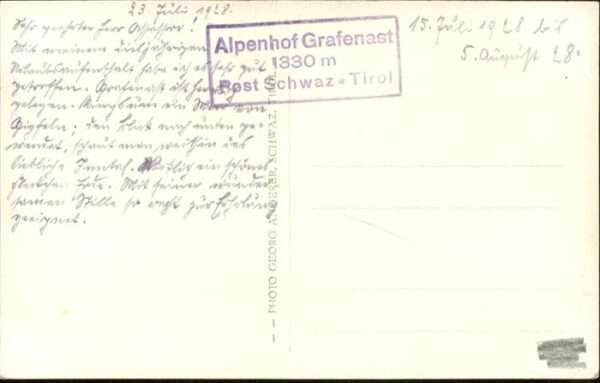 23 Juli 1928.
Sehr geehrter Herr !
Mit meinem diesjährigen
Urlaubsaufenthalt habe ich es sehr gut
getroffen. Grafenast ist
gelegen. Ringsum ein Meer von
Gipfeln; den Blick nach unten ge-
wendet, schaut man weithin das
liebliche Inntal. ein schönes
Fleckchen Erde. Mit seiner wunder-
samen Stille so recht zur Erholung
geeignet.
Alpenhof Grafenast
1330 m
Post Schwaz - Tirol
15. Juli 1928 bis
5. August 28.
— PHOTO GEORG ANGERER, SCHWAZ, TIROL